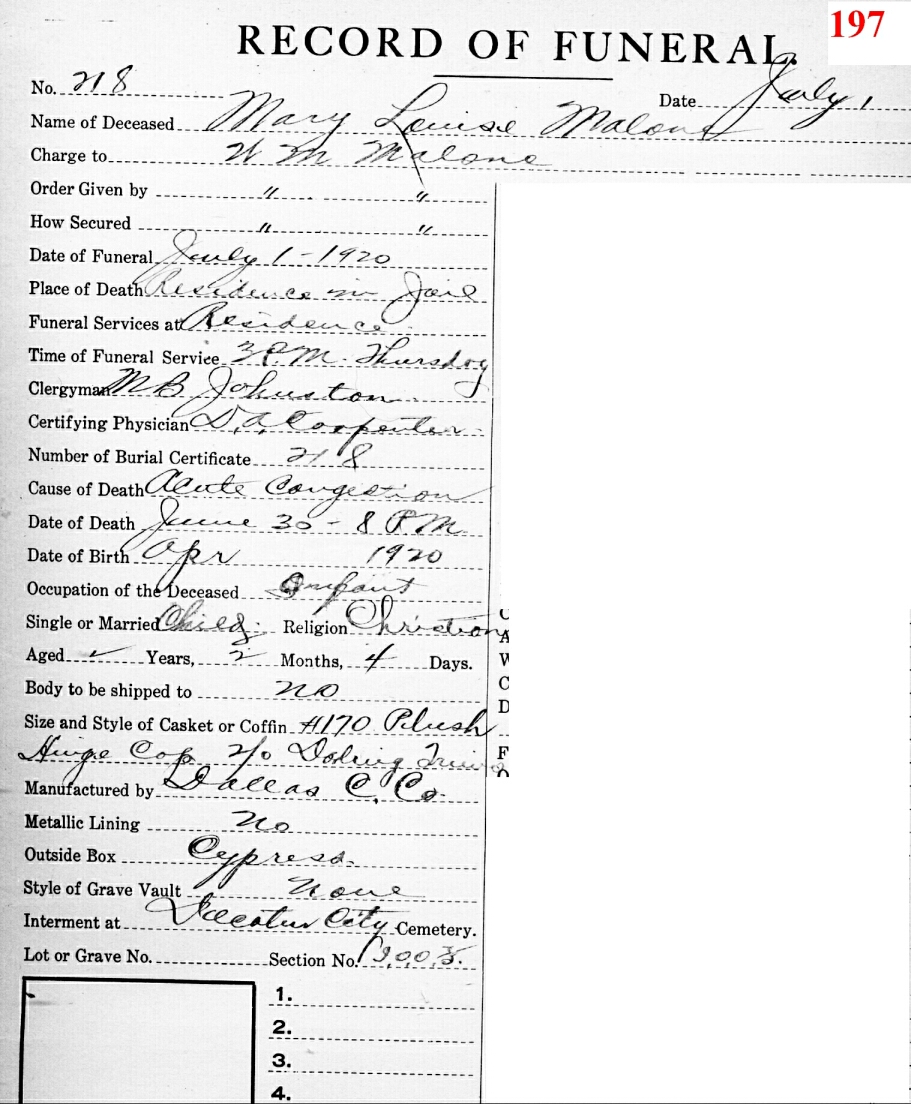 197
RECORD OF FUNERAL.
No. 218 Date July 1
Name of Deceased Mary Louise Malone
Charge to W M Malone
Order Given by " "
How Secured " "
Date of Funeral July 1-1920
Place of Death Residence in Jail
Funeral Services at Residence
Time of Funeral Service 3 P.M. Thursday
Clergyman M B Johnston
Certifying Physician D. A. Carpenter
Number of Burial Certificate 218
Cause of Death Acute Congestion
Date of Death June 30 - 8 P M
Date of Birth Apr 1920
Occupation of the Deceased Infant
Single or Married Child Religion Christian
Aged Years, 2 Months, 4 Days.
Body to be shipped to no
Size and Style of Casket or Coffin #170 Plush
Hinge Cap 2/0
Manufactured by Dallas C. Co.
Metallic Lining No
Outside Box Cypress.
Style of Grave Vault None
Interment at Decatur City Cemetery.
Lot or Grave No. Section No.
1.
2.
3.
4.